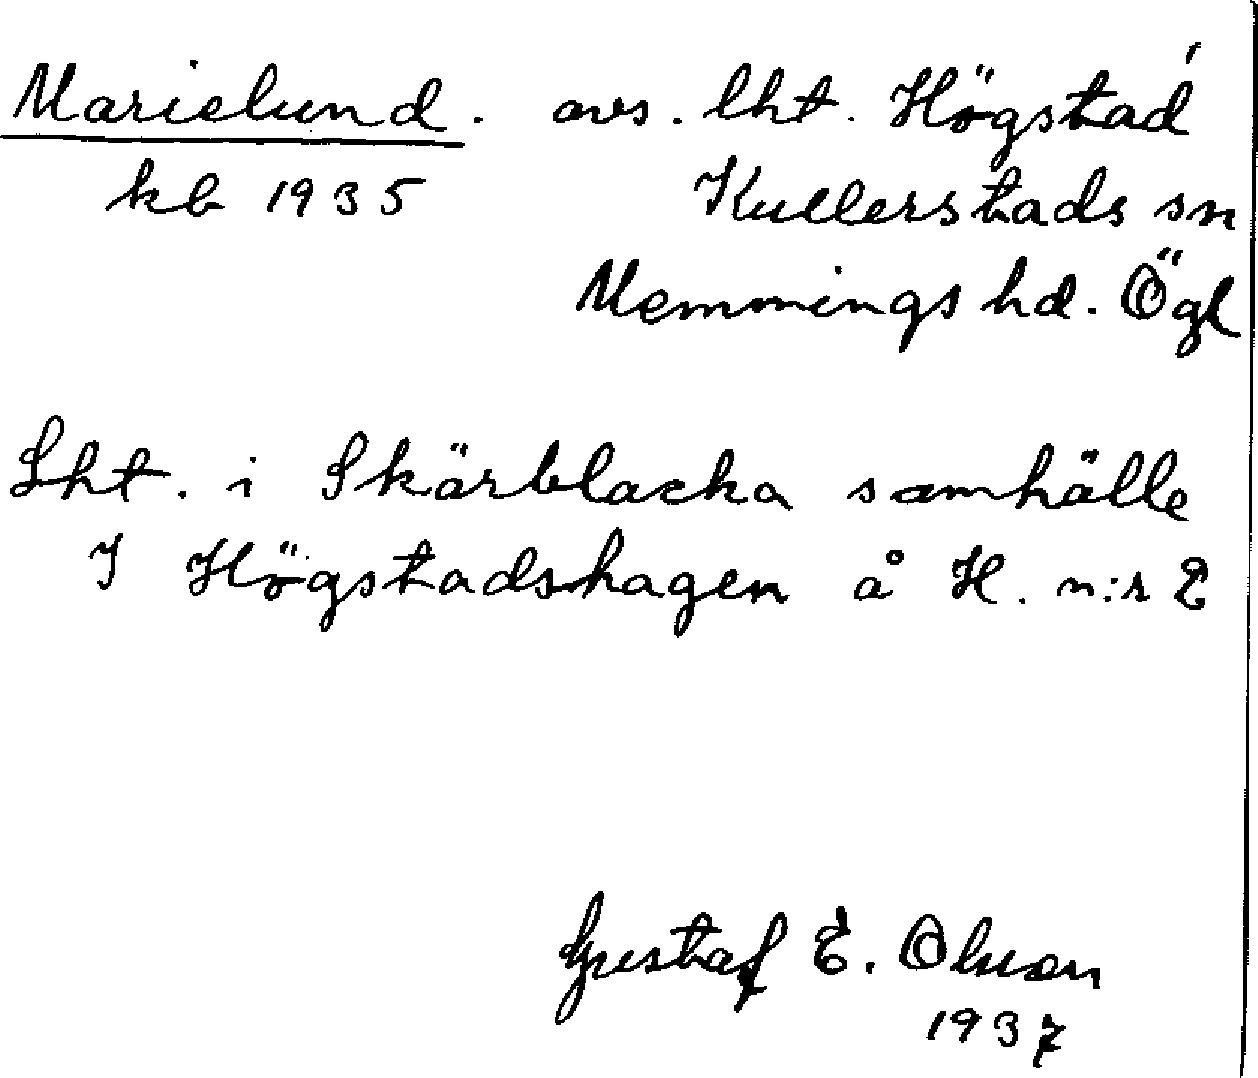 Marielund. avs. lht. Högstad
kb 1935 Kullerstads sn
Memmings hd. Ögl
Lht. i Skärblacka samhälle
I Högstadshagen å H. n:r 2
Gustaf E. Olson
1937